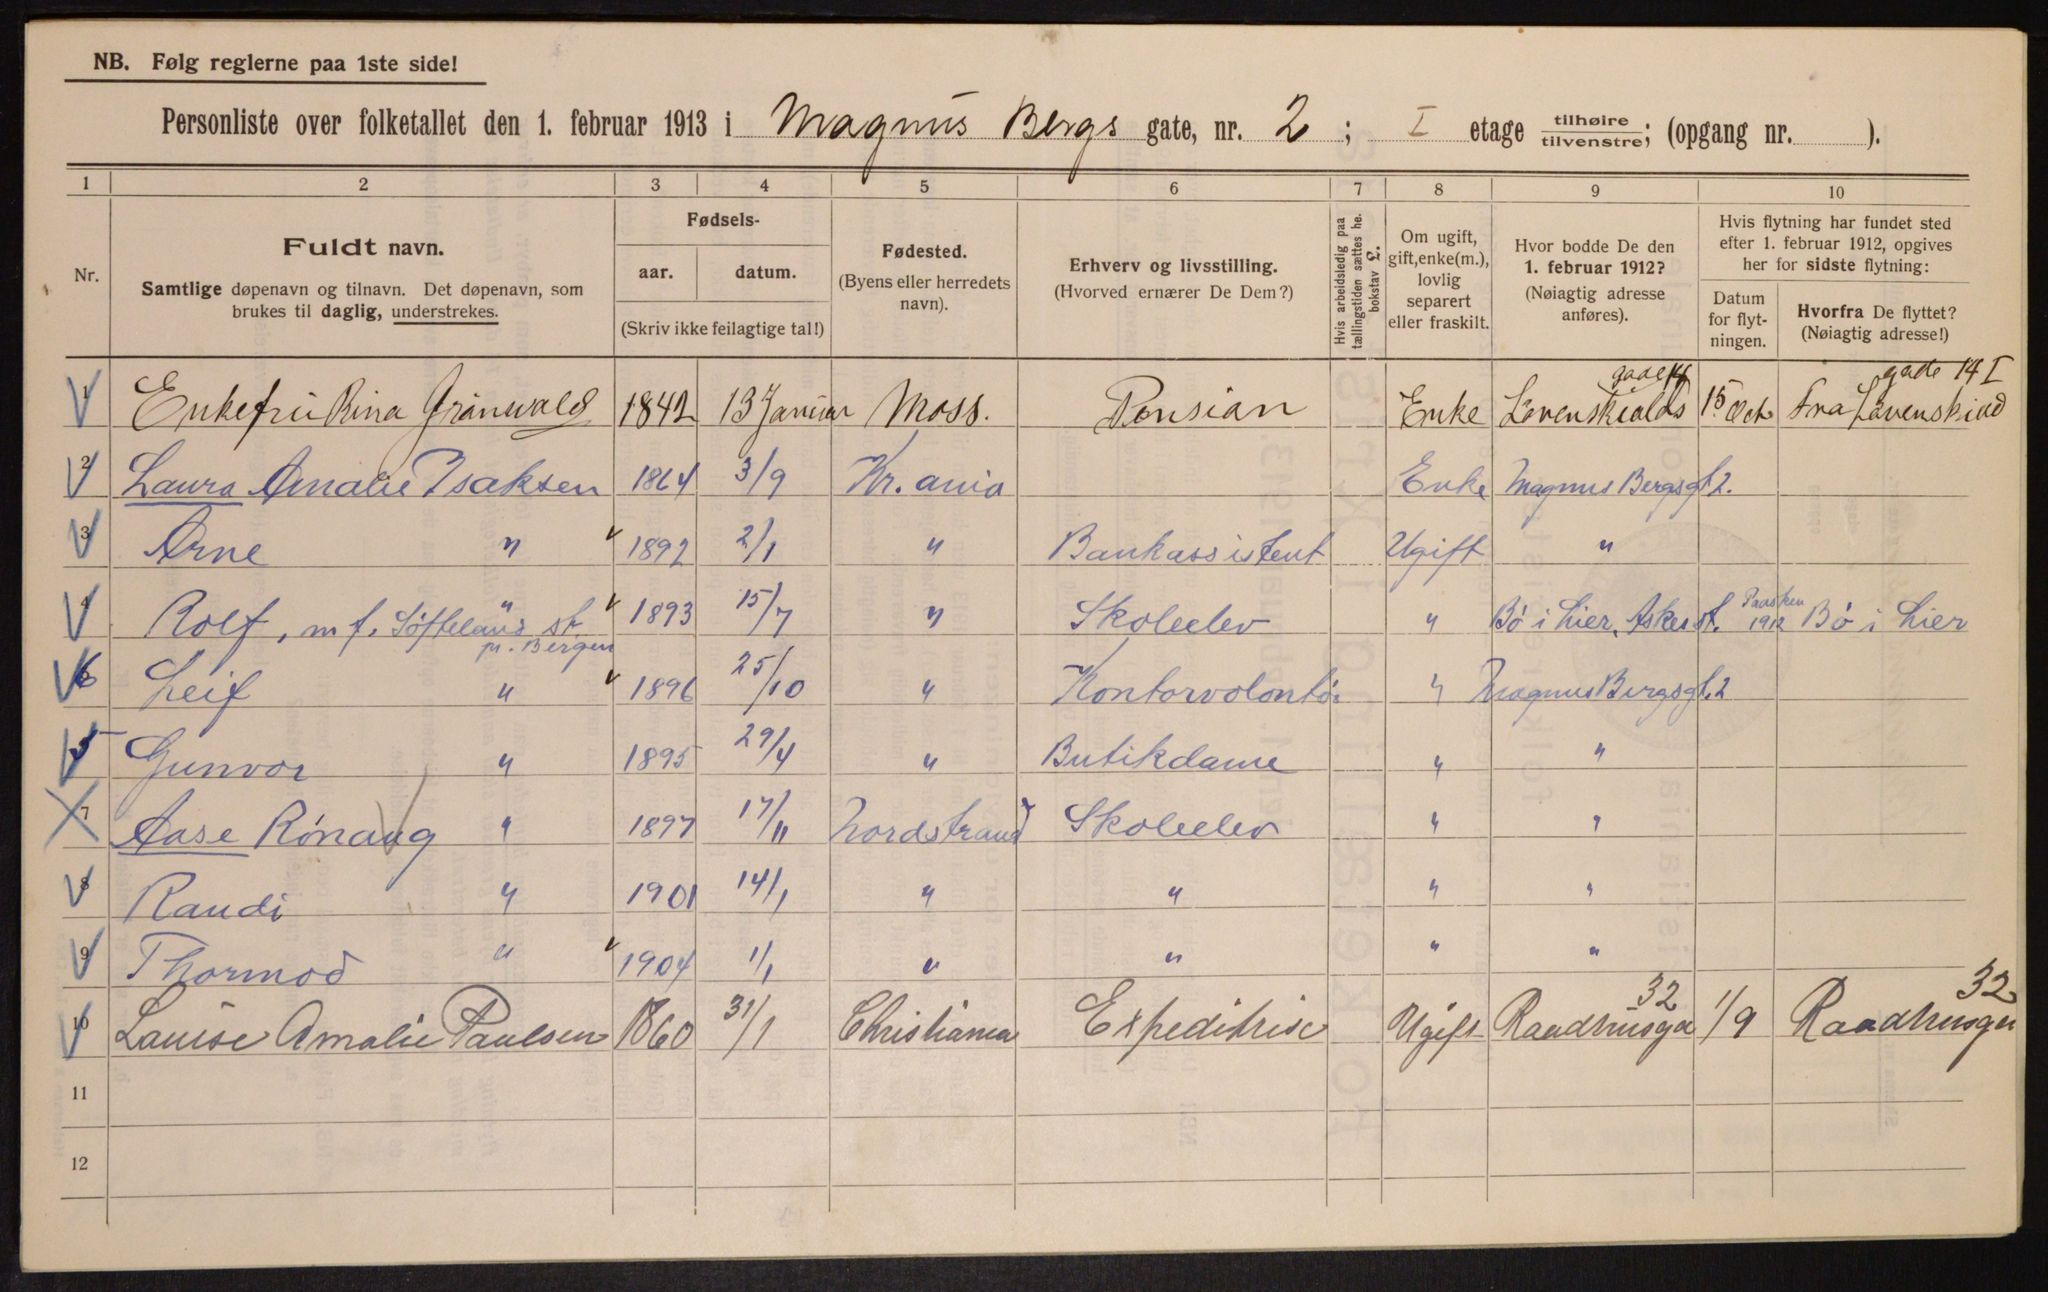 NB. Følg reglerne paa 1ste side!
Personliste over folketallet den 1. februar 1913 i Magnus Bergs gate, nr. 2; I etage tilhøire/tilvenstre; (opgang nr. ).
1 2 3 4 5 6 7 8 9 10
Nr.
Fuldt navn.
Samtlige døpenavn og tilnavn. Det døpenavn, som
brukes til daglig, understrekes.
Fødsels-
aar. datum.
(Skriv ikke feilagtige tal!)
Fødested.
(Byens eller herredets
navn).
Erhverv og livsstilling.
(Hvorved ernærer De Dem?)
Hvis arbeidsledig paa
tællingstiden sættes he.
bokstav L.
Om ugift,
gift, enke(m.),
lovlig
separert
eller fraskilt.
Hvor bodde De den
1. februar 1912?
(Nøiagtig adresse
anføres).
Hvis flytning har fundet sted
efter 1. februar 1912, opgives
her for sidste flytning:
Datum
for flyt-
ningen.
Hvorfra De flyttet?
(Nøiagtig adresse!)
gade 14 gade 14 I
1 Enkefru Rina Grünwald 1842 13 Januar Moss. Pensian Enke Løvenskiolds 15 Oct Fra Løvenskiold
2 Laura Amalie Isaksen 1864 3/9 Kr.ania Enke Magnus Bergsgt 2.
3 Arne " 1892 2/1 " Bankassistent Ugift "
4 Rolf, m f. Søfteland st. " 1893 15/7 " Skoleelev " Bø i Lier, Asker st. Paasken 1912 Bø i Lier
p. Bergen
6 Leif " 1896 25/10 " Kontorvolontør " Magnus Bergsgt. 2
5 Gunvor " 1895 29/4 " Butikdame " "
7 Aase Rónaug " 1897 17/11 Nordstrand Skoleelev " "
8 Randi " 1901 14/1 " " " "
9 Thormod " 1904 1/1 " " " "
32 32
10 Louise Amalie Paulsen 1860 31/1 Christiania Expeditrise Ugift Raadhusga 1/9 Raadhusga
11
12